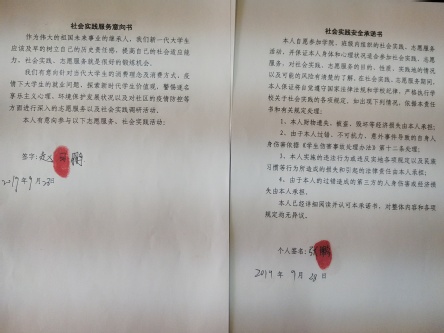 社会实践服务意向书
作为伟大的祖国未来事业的继承人，我们新一代大学生
应该及早的树立自己的历史责任感，提高自己的社会适应能
力。社会实践、志愿服务就是很好的锻炼机会。
我们有意向针对当代大学生的消费理念及消费方式，疫
情下大学生的就业问题，探索新时代学生价值观，警惕逃名
享乐主义心理、环境保护发展状况以及对社区积极疫情防控等
方面进行深入的志愿服务以及社会实践调研活动。
本人有意向参与以下志愿服务、社会实践活动：
签字：
2019年9月28日
社会实践安全承诺书
本人自愿参加学院、班级内组织的社会实践、志愿服务
活动，并保证本人身体和心理状况适合参加社会实践、志愿
服务。对社会实践、志愿服务的目的、性质、实践地的情况
以及可能的风险有清楚的了解。在社会实践、志愿服务期间，
本人保证将自觉遵守国家法律法规和学校纪律，严格执行学
校关于社会实践的各项规定。如出现下列情况，依据本责任
书和有关规定处理：
1、本人财物遗失、被盗、毁坏等经济损失由本人承担；
2、由于本人过错、不可抗力、意外事件导致的自身人
身伤害依据《学生伤害事故处理办法》第十二条处理；
3、本人实施的违法行为或违反实地各项规定以及风俗
习惯等行为所造成的损失和引起的法律责任由本人承担；
4、由于本人的过错造成的第三方的人身伤害或经济损
失由本人承担。
本人已经详细阅读并认可本承诺书，对整体内容和各项
规定均无异议。
个人签名：张鹏
2019年9月28日